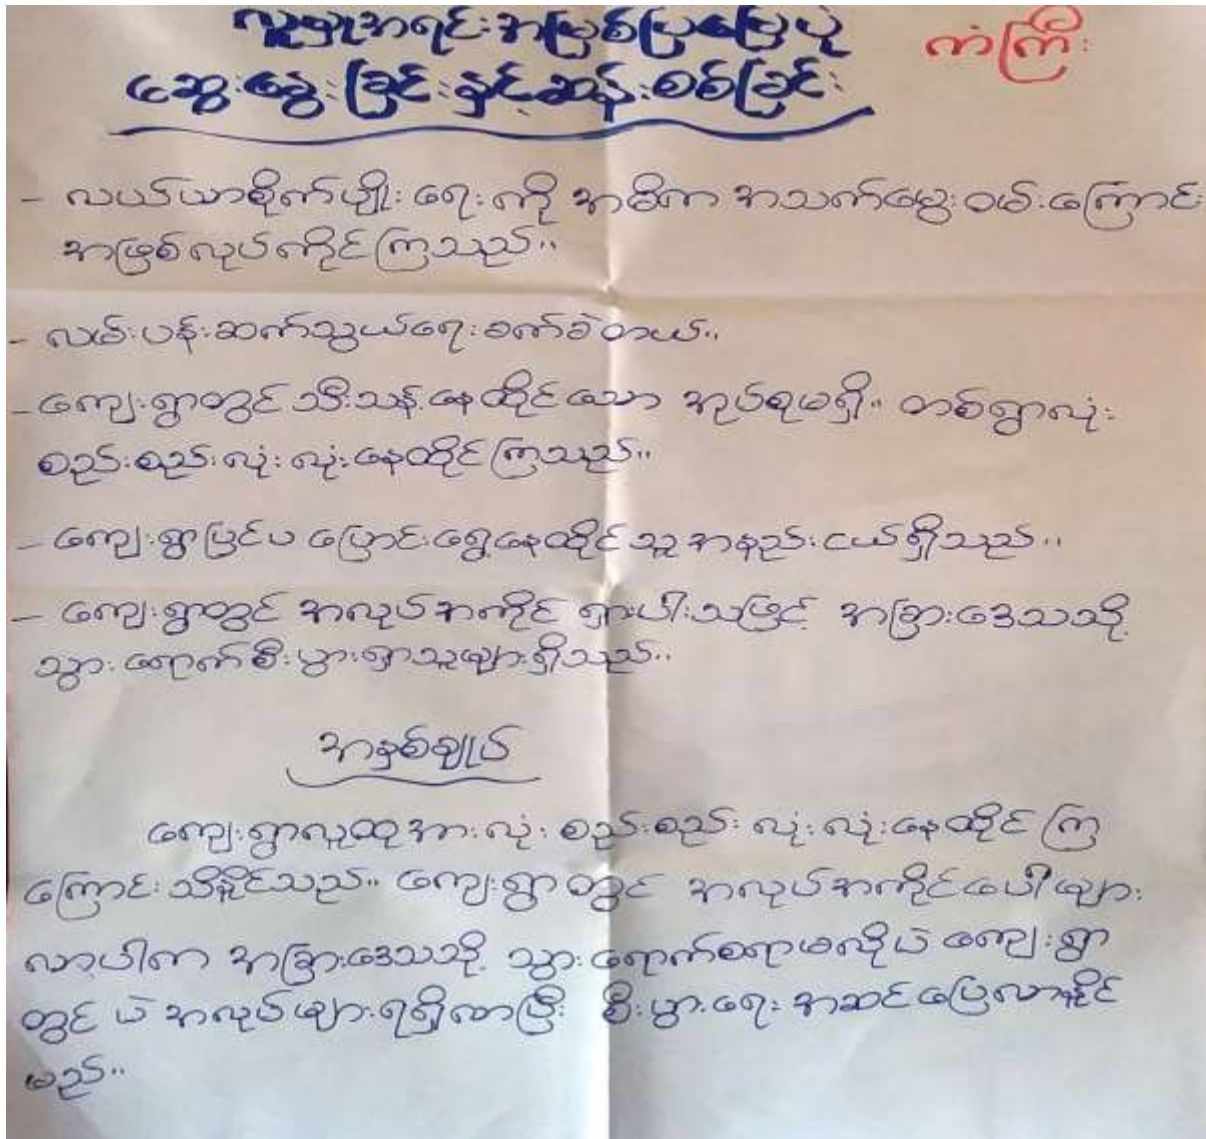 လူမှုအရင်းအမြစ်ပြမြေပုံ
ဆွေးနွေးခြင်းနှင့်ဆန်းစစ်ခြင်း
ကံကြီး
- လယ်ယာစိုက်ပျိုးရေးကို အဓိက အသက်မွေးဝမ်းကြောင်း
အဖြစ်လုပ်ကိုင်ကြသည်။
- လမ်းပန်းဆက်သွယ်ရေးခက်ခဲတယ်။
- ကျေးရွာတွင် သီးသန့်နေထိုင်သော အုပ်စုမရှိ။ တစ်ရွာလုံး
စည်းစည်းလုံးလုံးနေထိုင်ကြသည်။
- ကျေးရွာပြင်ပ ပြောင်းရွှေ့နေထိုင်သူ အနည်းငယ်ရှိသည်။
- ကျေးရွာတွင် အလုပ်အကိုင် ရှားပါးသဖြင့် အခြားဒေသသို့
သွားရောက်စီးပွားရှာသူများရှိသည်။
အနှစ်ချုပ်
ကျေးရွာလူထုအားလုံး စည်းစည်းလုံးလုံးနေထိုင်ကြ
ကြောင်းသိနိုင်သည်။ ကျေးရွာတွင် အလုပ်အကိုင်ပေါများ
လာပါက အခြားဒေသသို့ သွားရောက်စရာမလိုပဲ ကျေးရွာ
တွင် ပဲ အလုပ်များရရှိကာပြီး စီးပွားရေး အဆင်ပြေလာနိုင်
မည်။